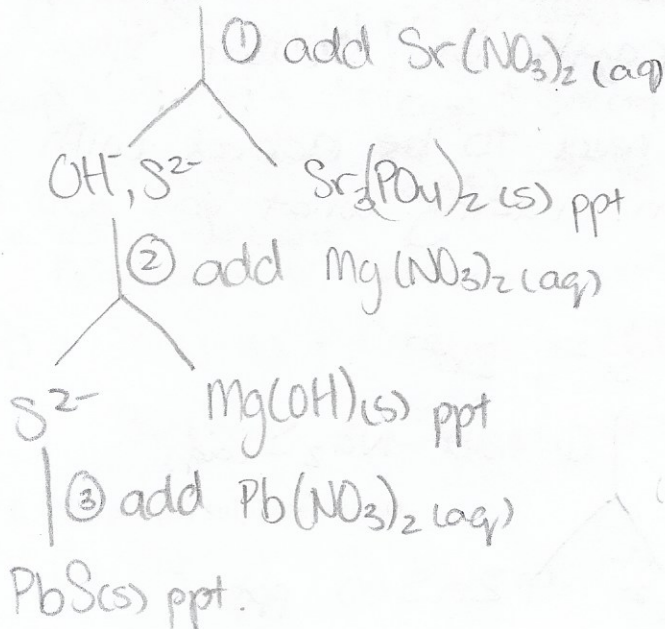 ① add Sr(NO₃)₂ (aq)
OH⁻, S²⁻ Sr₃(PO₄)₂ (s) ppt
② add Mg(NO₃)₂ (aq)
S²⁻ Mg(OH)(s) ppt
③ add Pb(NO₃)₂ (aq)
PbS(s) ppt.